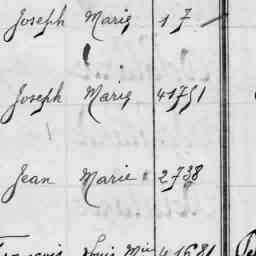 Joseph Marie 17
Joseph Marie 41751
Jean Marie 2738
Louis Mie 41681